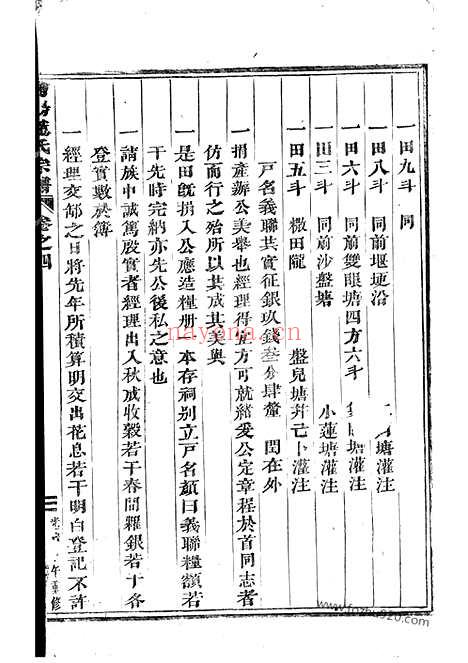 一田九斗　同
一田八斗　同前堰埂沿　塘灌注
一田六斗　同前雙眼塘四方六斗　塘灌注
一田三斗　同前沙盤塘　小蓮塘灌注
一田五斗　橵田隴　盤兒塘幷　灌注
戸名義聯共實征銀玖錢叁分肆釐　閏在外
一捐產辦公美舉也經理得其方可就緒爰公定章程於首同志者
仿而行之殆所以共成其美與
一是田旣捐入公應造糧册一本存祠别立戸名顏曰義聯糧額若
干先時完納亦先公後私之意也
一請族中誠篤殷實者經理出入秋成收穀若干春間糶銀若干各
登實數於簿
一經理交郤之日將先年所積算明交出花息若干明白登記不許
氏宗譜　卷之四
午重修
nayona.cn
www.fozhu920.com